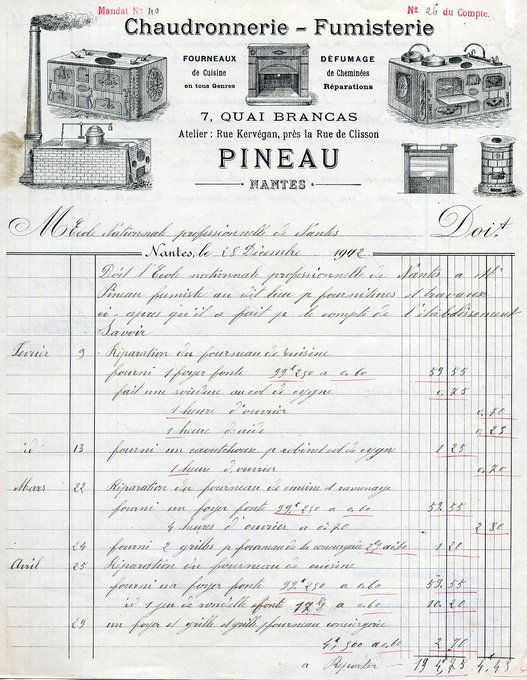 Mandat Nº 40
Nº 26 du Compte.
Chaudronnerie - Fumisterie
FOURNEAUX
de Cuisine
en tous Genres
DÉFUMAGE
de Cheminées
Réparations
7, QUAI BRANCAS
Atelier : Rue Kervégan, près la Rue de Clisson
PINEAU
NANTES
M Ecole Nationale professionnelle de Nantes Doit
Nantes, le 28 Décembre 1902
Doit l'Ecole nationale professionnelle de Nantes a Mr
Pineau fumiste au dit lieu p fournitures et travaux
ci-apres qu'il a fait p le compte de l'établissement
Savoir
Fevrier 9 Réparation du fourneau de cuisine
fourni 1 foyer fonte 99k250 a 0.60 59.55
fait une soudure au col de cygne 0.75
1 heure d'ouvrier 0.70
1 heure d'aide 0.25
id 13 fourni un caoutchouc p robinet col de cygne 1 25
1 heure d'ouvrier 0.70
Mars 22 Réparation du fourneau de cuisine
fourni un foyer fonte 99k250 a 0.60 59.55
4 heures d'ouvrier a 0.70 2 80
24 fourni 2 grilles p fourneau de la conciergerie 2k a 0.60 1 20
Avril 25 Réparation du fourneau de cuisine
fourni un foyer fonte 99k250 a 0.60 59.55
id 1 jeu de rondelle fonte 17k a 0.60 10.20
29 un foyer et grille fourneau conciergerie
4k,500 a 0.60 2 70
a Reporter 194,75 4.45